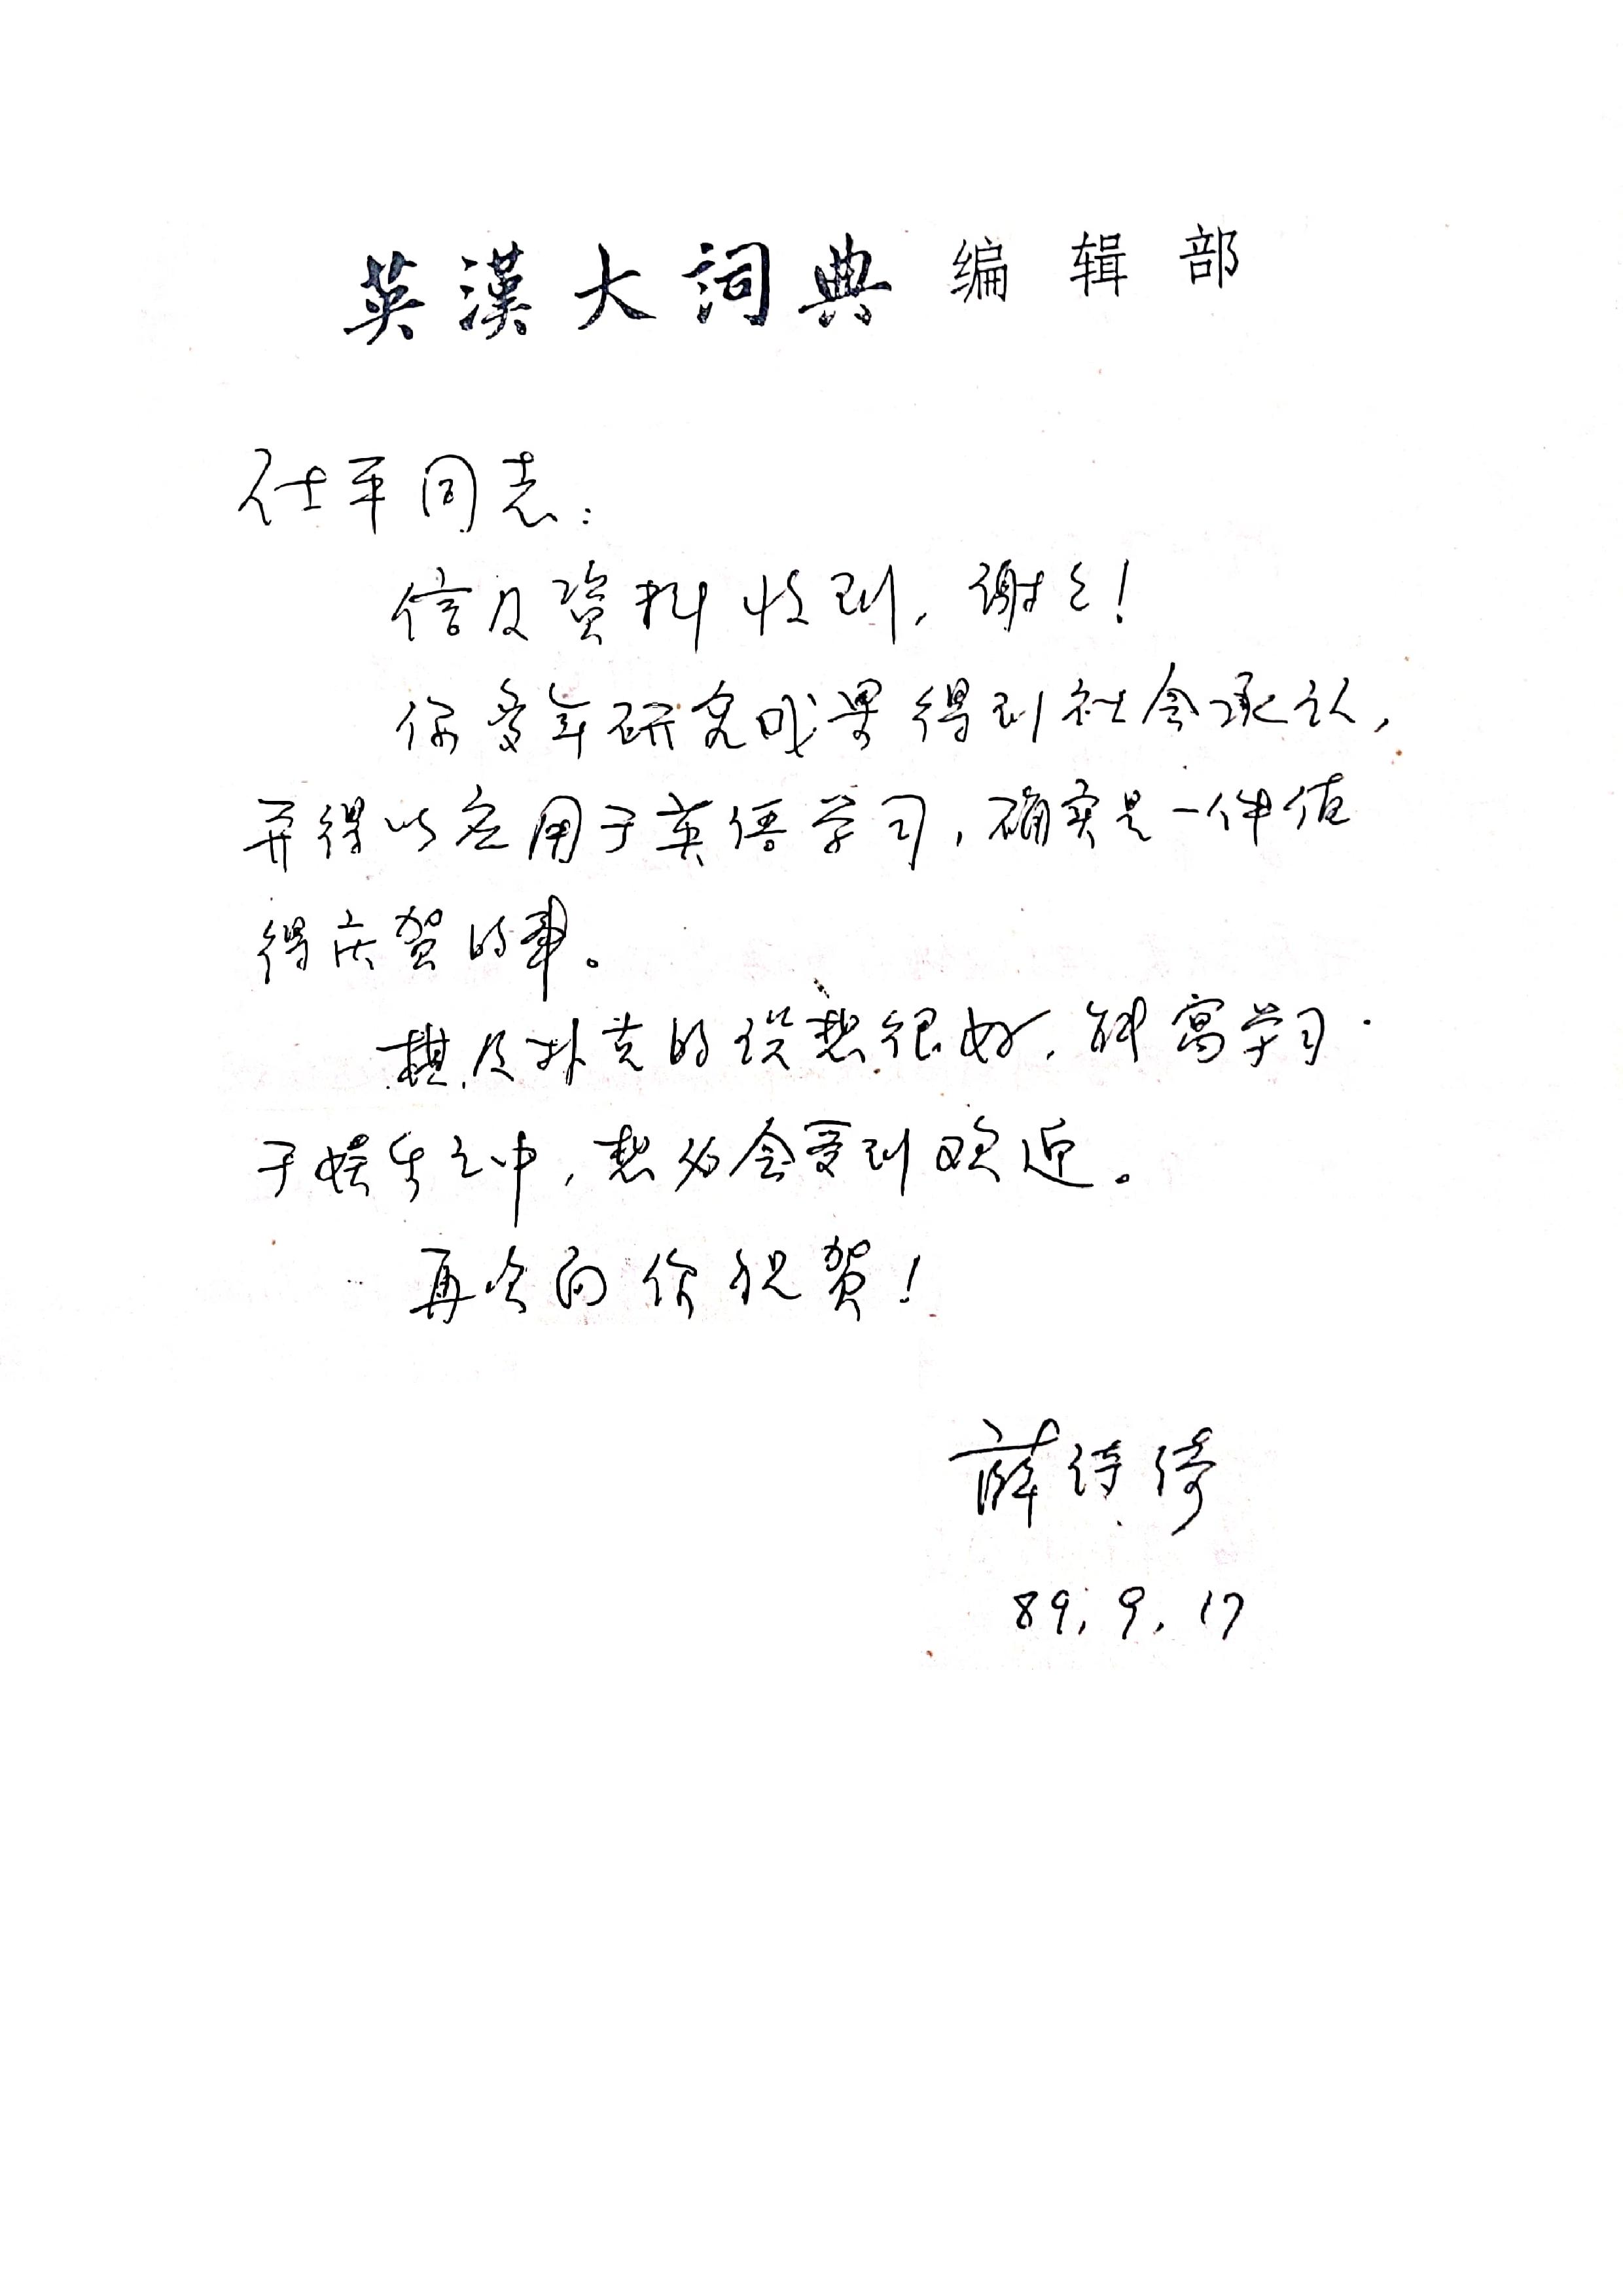 英漢大詞典编辑部
仕平同志:
信及資料收到,谢々!
你多年研究成果得到社会承认,
并得以应用于英语学习,确实是一件值
得庆贺的事。
棋及扑克的设想很好,能寓学习
于娱乐之中,想必会受到欢迎。
再次向你祝贺!
薛诗绮
89.9.17